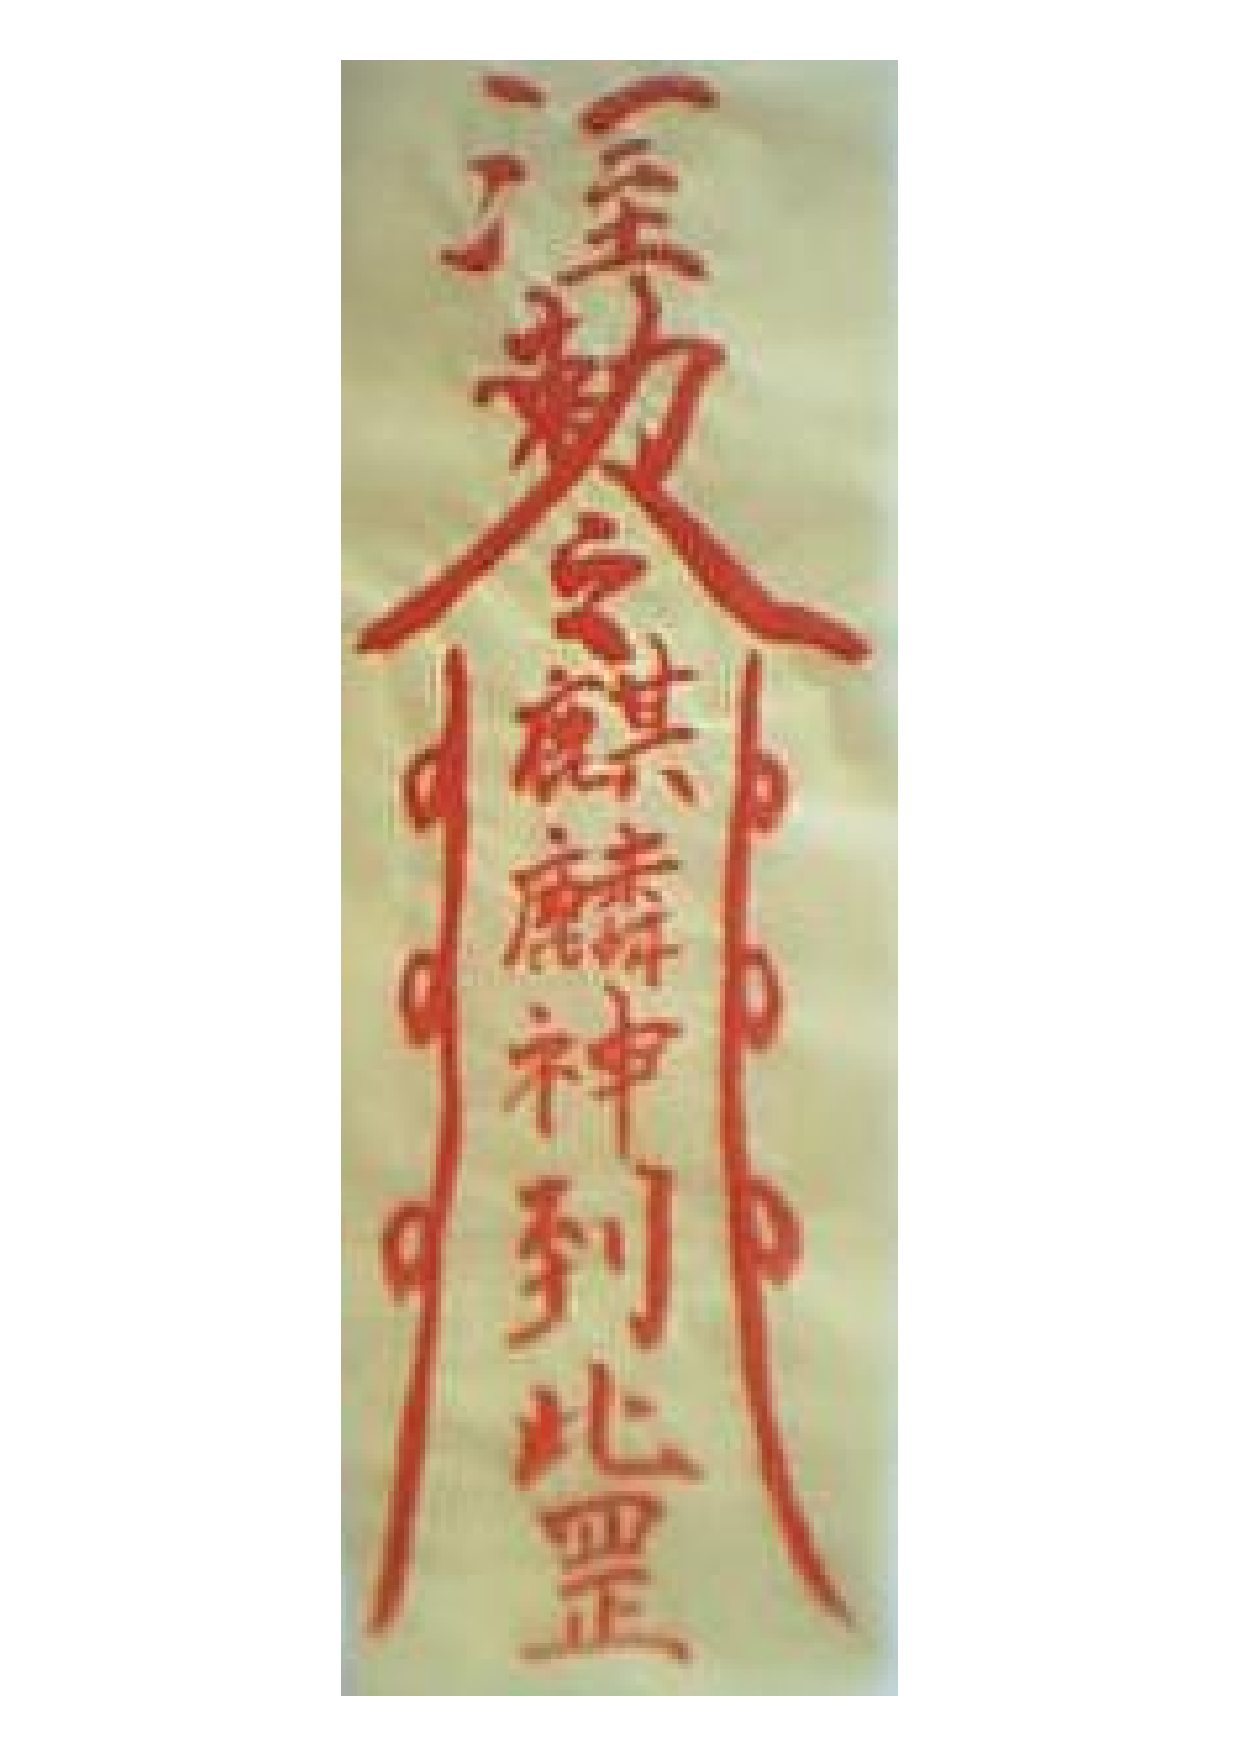 敕令麒麟神到此罡